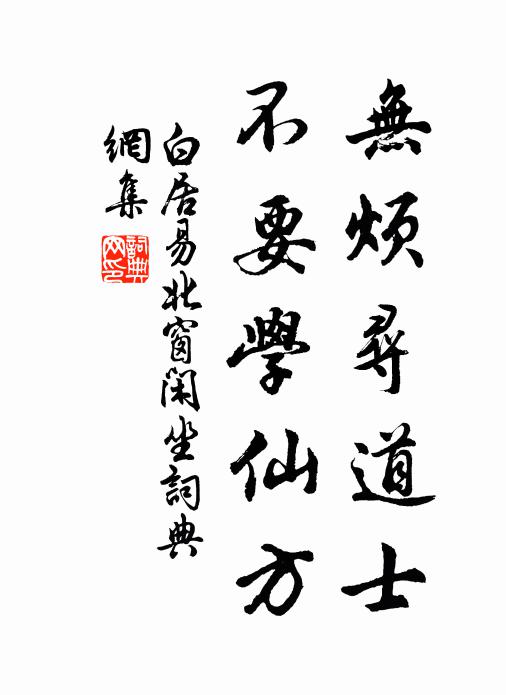 無煩尋道士
不要學仙方
白居易北窗閑坐詞典
網集
詞典
网印